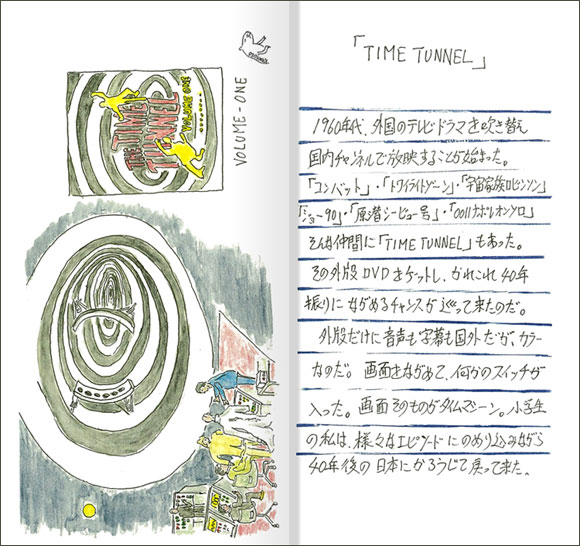 THE TIME
TUNNEL
VOLUME ONE
VOLUME-ONE
「TIME TUNNEL」
1960年代、外国のテレビドラマを吹き替え
国内チャンネルで放映することが始まった。
「コンバット」・「トワイライトゾーン」・「宇宙家族ロビンソン」
「ジョー90」・「原潜シービュー号」・「0011ナポレオンソロ」
そんな仲間に「TIME TUNNEL」もあった。
その外版DVDをゲットし、かれこれ40年
振りにながめるチャンスが巡って来たのだ。
外版だけに音声も字幕も国外だが、カラー
なのだ。画面をながめて、何かのスイッチが
入った。画面そのものがタイムマシーン。小学生
の私は、様々なエピソードにのめり込みながら
40年後の日本にかろうじて戻って来た。